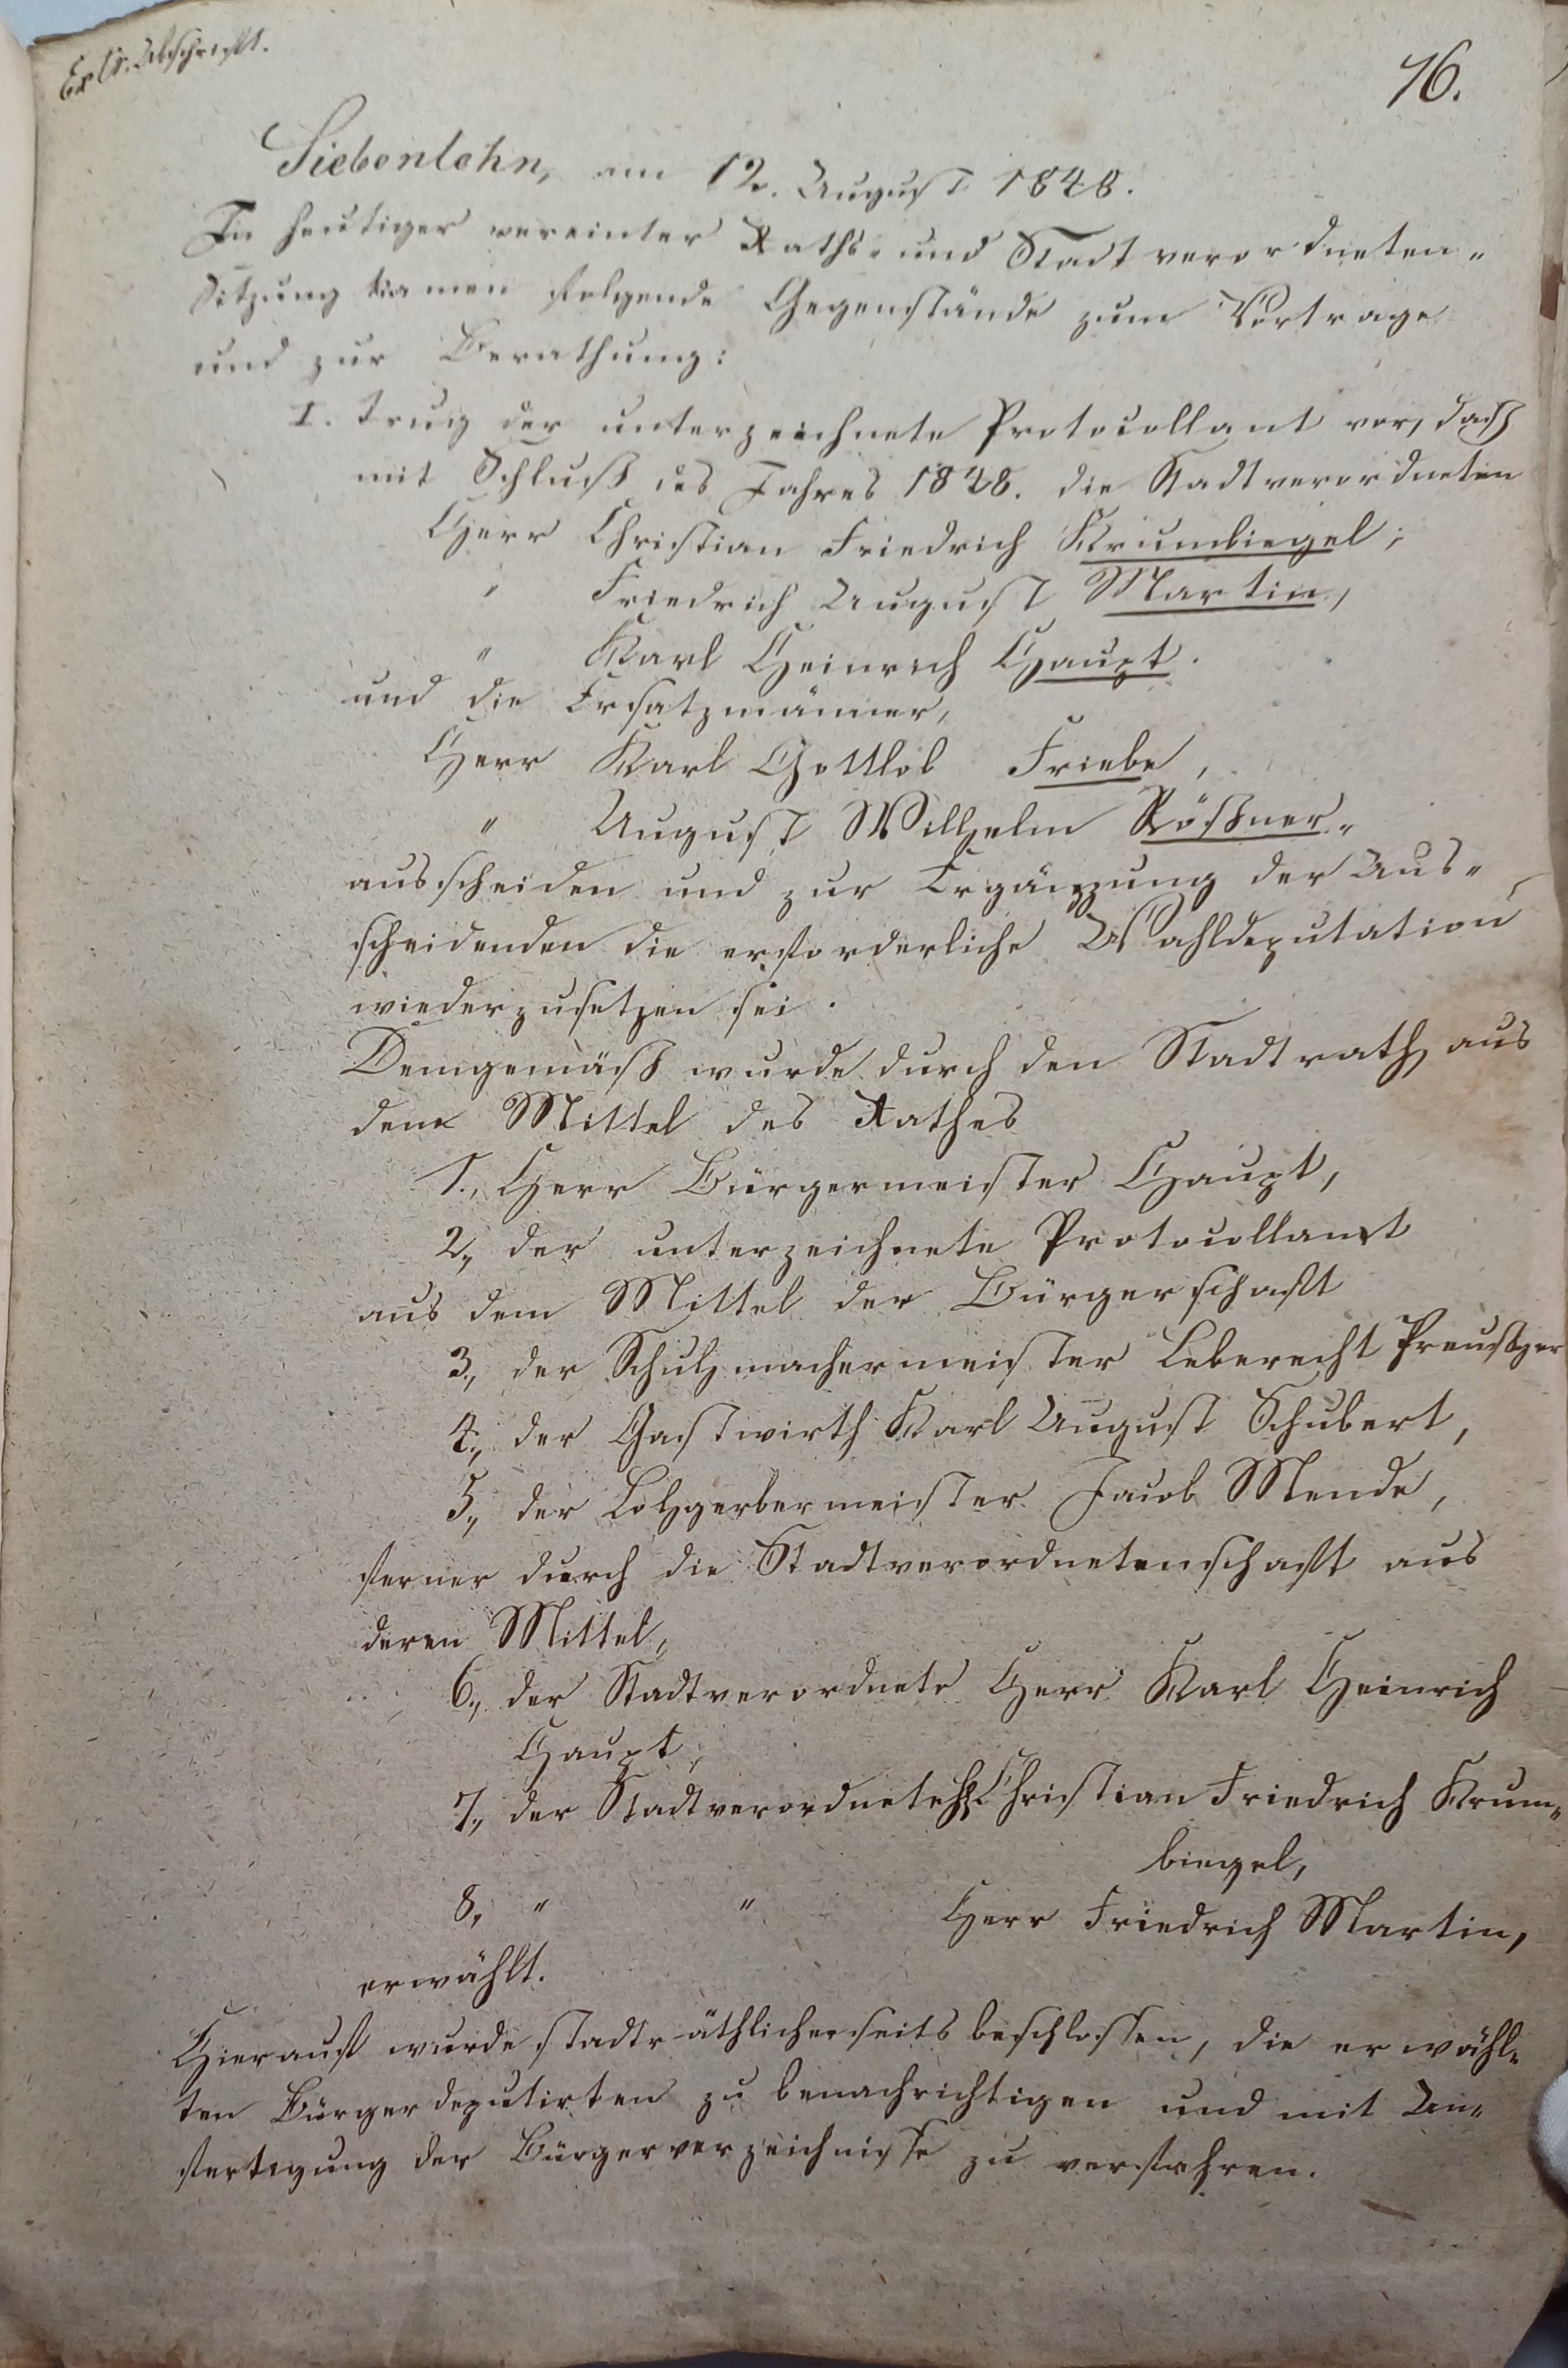 Extr. Abschrift.
76.
Siebenlehn, am 12. August 1848.
In heutiger vereinter Raths- und Stadtverordneten-
Sitzung kamen folgende Gegenstände zum Vortrage
und zur Berathung:
I. trug der unterzeichnete Protocollant vor, daß
mit Schluß des Jahres 1848. die Stadtverordneten
Herr Christian Friedrich Krumbiegel,
" Friedrich August Martin,
" Karl Heinrich Haupt.
und die Ersatzmänner,
Herr Karl Gottlob Friebe,
" August Wilhelm Rößner
ausscheiden und zur Ergänzung der Aus-
scheidenden die erforderliche Wahldeputation
niederzusetzen sei.
Demgemäß wurde durch den Stadtrath aus
dem Mittel des Rathes
1., Herr Bürgermeister Haupt,
2., der unterzeichnete Protocollant
aus dem Mittel der Bürgerschaft
3., der Schuhmachermeister Leberecht Preußger
4., der Gastwirth Karl August Schubert,
5., der Lohgerbermeister Jacob Mende,
ferner durch die Stadtverordnetenschaft aus
deren Mittel,
6., der Stadtverordnete Herr Karl Heinrich
Haupt,
7., der Stadtverordnete Hr. Christian Friedrich Krum-
biegel,
8., " " Herr Friedrich Martin,
erwählt.
Hierauf wurde stadträthlicherseits beschlossen, die erwähl-
ten Bürgerdeputirten zu benachrichtigen und mit An-
fertigung der Bürgerverzeichnisse zu verfahren.